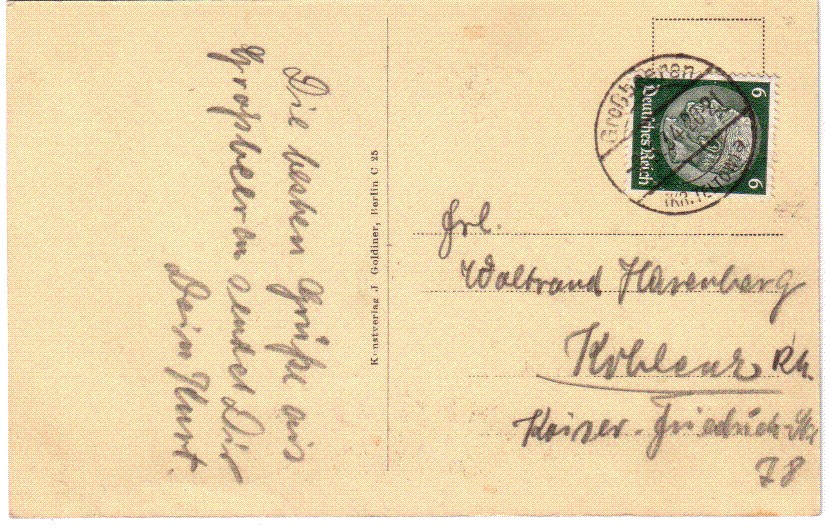 Die besten Grüße aus
Großbeeren sendet Dir
Dein Kurt.
Kunstverlag J. Goldiner, Berlin C 25
Großbeeren
(KR. TELTOW)
Deutsches Reich
6
6
Frl.
Waltraud Harenberg
Koblenz Rh.
Kaiser-Friedrich-Str
78